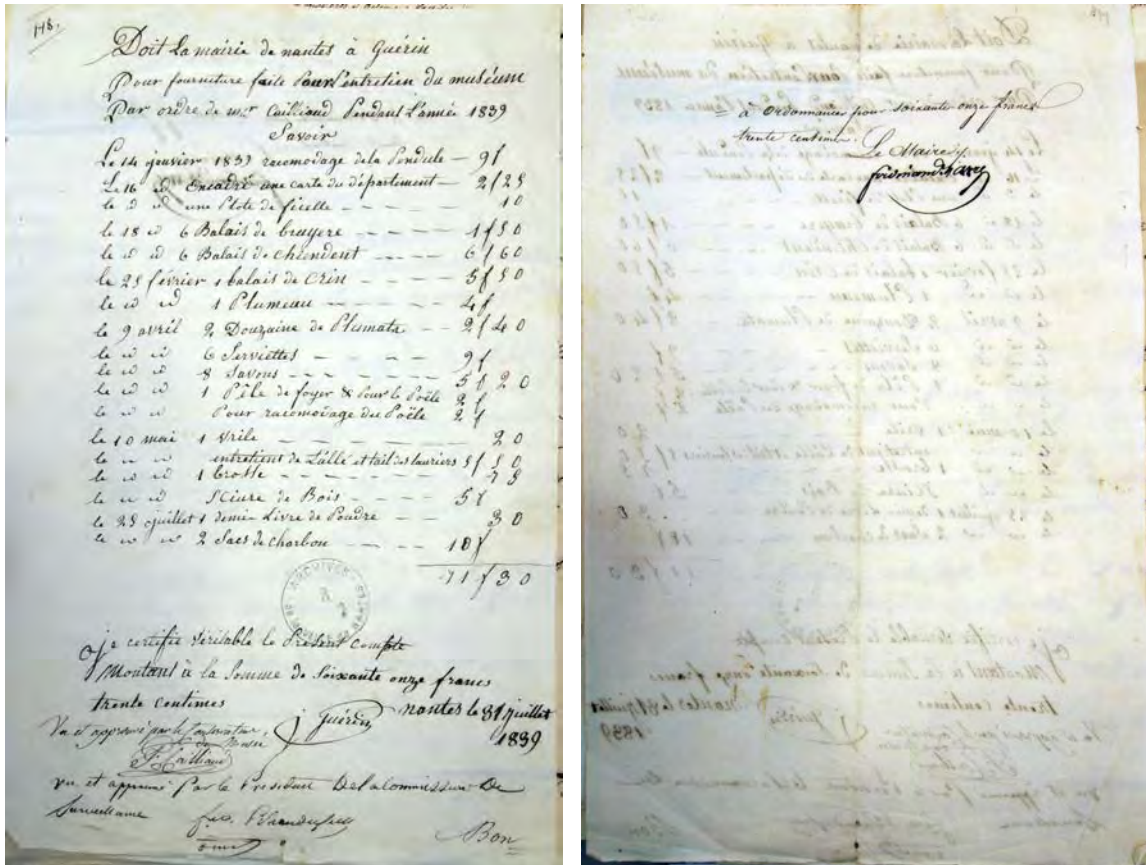 118.
Doit La mairie de nantes à Guérin
Pour fourniture faite Pour l'entretien du muséum
Par ordre de mr Cailliaud Pendant l'année 1839
Savoir
Le 14 janvier 1839 racomodage de la Pendule — 9f
Le 16 id Encadré une carte du département — 2f25
le id id une Plote de ficelle — — — — 10
le 18 id 6 Balais de bruyere — — — — 4f50
le id id 6 Balais de chiendent — — — 6f60
le 25 février 1 balais de Crin — — — 5f50
le id id 1 Plumeau — — 4f
le 9 avril 2 Douzaine de Plumata — — 2f40
le id id 6 Serviettes — — — — 9f
le id id 8 Savons — — — — — 5f20
le id id 1 Pêle de foyer & Pour le Poële 2f
le id id Pour racomodage du Poële 2f
le 10 mai 1 Vrile — — — — — 20
le id id entretient de L'allé et tail des lauriers 5f50
le id id 1 brosse — — — — — 75
le id id Sciure de Bois — — — 5f
le 25 juillet 1 demi-Livre de Poudre — — 30
le id id 2 Sacs de charbon — — — — 10f
71f30
ARCHIVES
je certifie véritable le Présent compte
Montant à la Somme de Soixante onze francs
trente centimes
j Guérin nantes le 31 juillet
1839
Vu et approuvé par le Conservateur
du Musée
F. Cailliaud
vu et approuvé par le President De La Commission De
Surveillance
Bon
à ordonnancer pour soixante onze francs
trente centimes.
Le Maire